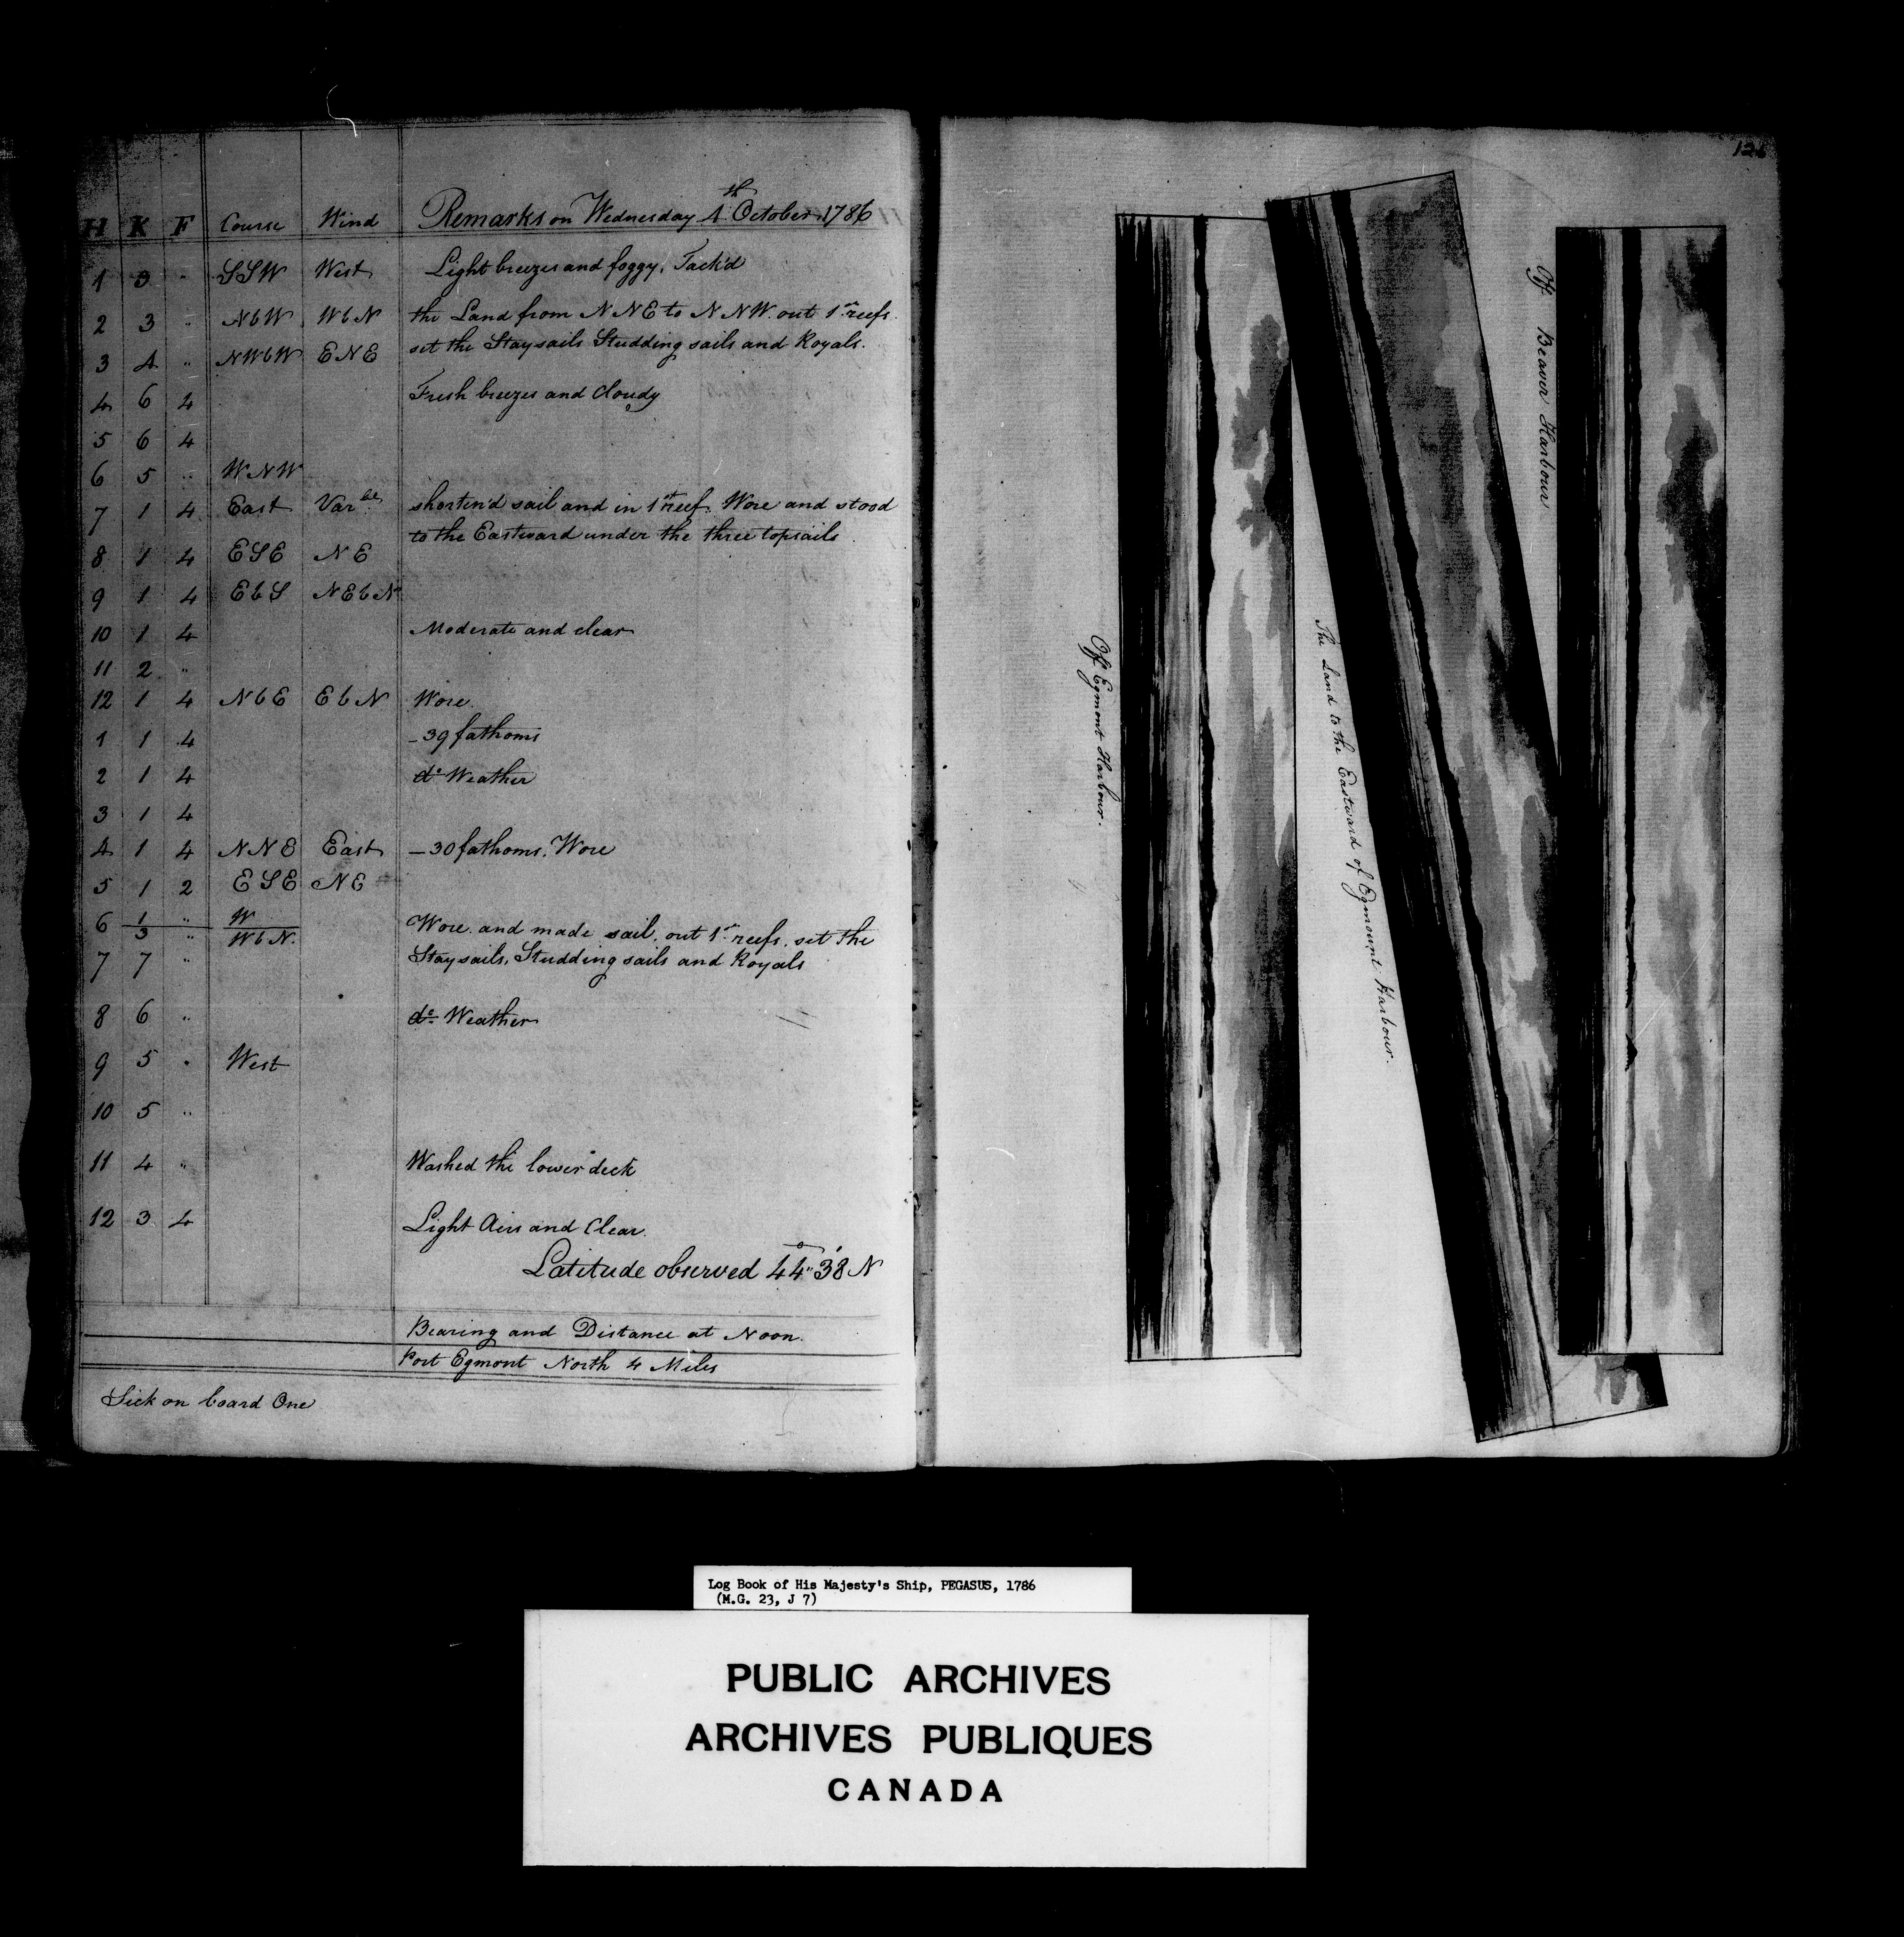 H K F Course Wind Remarks on Wednesday 4th October 1786
1 3 " SSW West Light breezes and foggy, Tack'd
2 3 " NbW WbN the Land from NNE to NNW. out 1st reefs.
3 4 " NWbW ENE set the Staysails Studding sails and Royals.
4 6 4 Fresh breezes and Cloudy
5 6 4
6 5 " WNW
7 1 4 East Var.ble shorten'd sail and in 1st reef. Wore and stood
to the Eastward under the three topsails.
8 1 4 ESE NE
9 1 4 EbS NEbN
10 1 4 Moderate and clear
11 2 "
12 1 4 NbE EbN Wore.
1 1 4 - 39 fathoms
2 1 4 do Weather
3 1 4
4 1 4 NNE East - 30 fathoms. Wore
5 1 2 ESE NE
6 1 " W
3 " WbN. Wore. and made sail, out 1st reefs. set the
7 7 " Staysails, Studding sails and Royals
8 6 " do Weather
9 5 " West
10 5 "
11 4 " Washed the lower deck
12 3 4 Light Airs and Clear.
Latitude observed 44°" 38' N
Bearing and Distance at Noon.
Port Egmont North 4 Miles
Sick on board One
Off Egmont Harbour.
The Land to the Eastward of Egmount Harbour.
Off Beaver Harbour
Log Book of His Majesty's Ship, PEGASUS, 1786
(M.G. 23, J 7)
PUBLIC ARCHIVES
ARCHIVES PUBLIQUES
CANADA